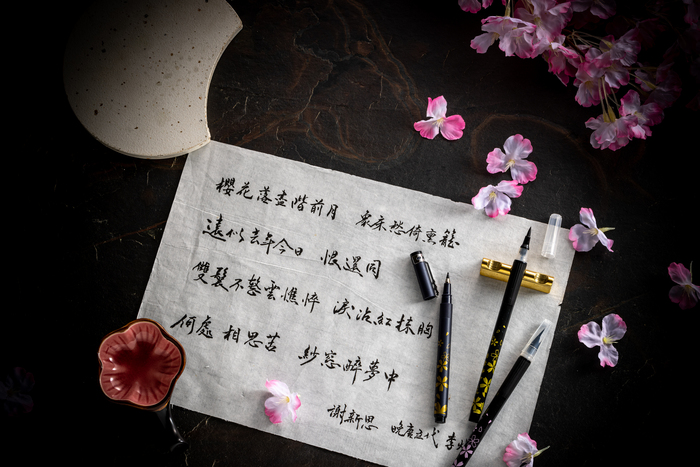 櫻花落盡階前月 象床愁倚熏籠
遠似去年今日 恨還同
雙鬟不整雲憔悴 淚沾紅抹胸
何處相思苦 紗窗醉夢中
謝新恩 晚唐五代 李